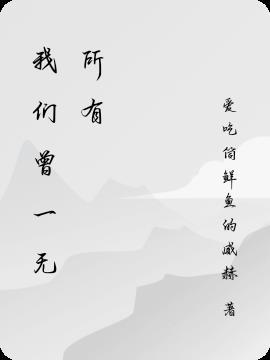 我们曾一无
所有
爱吃筒鲜鱼的威赫 著